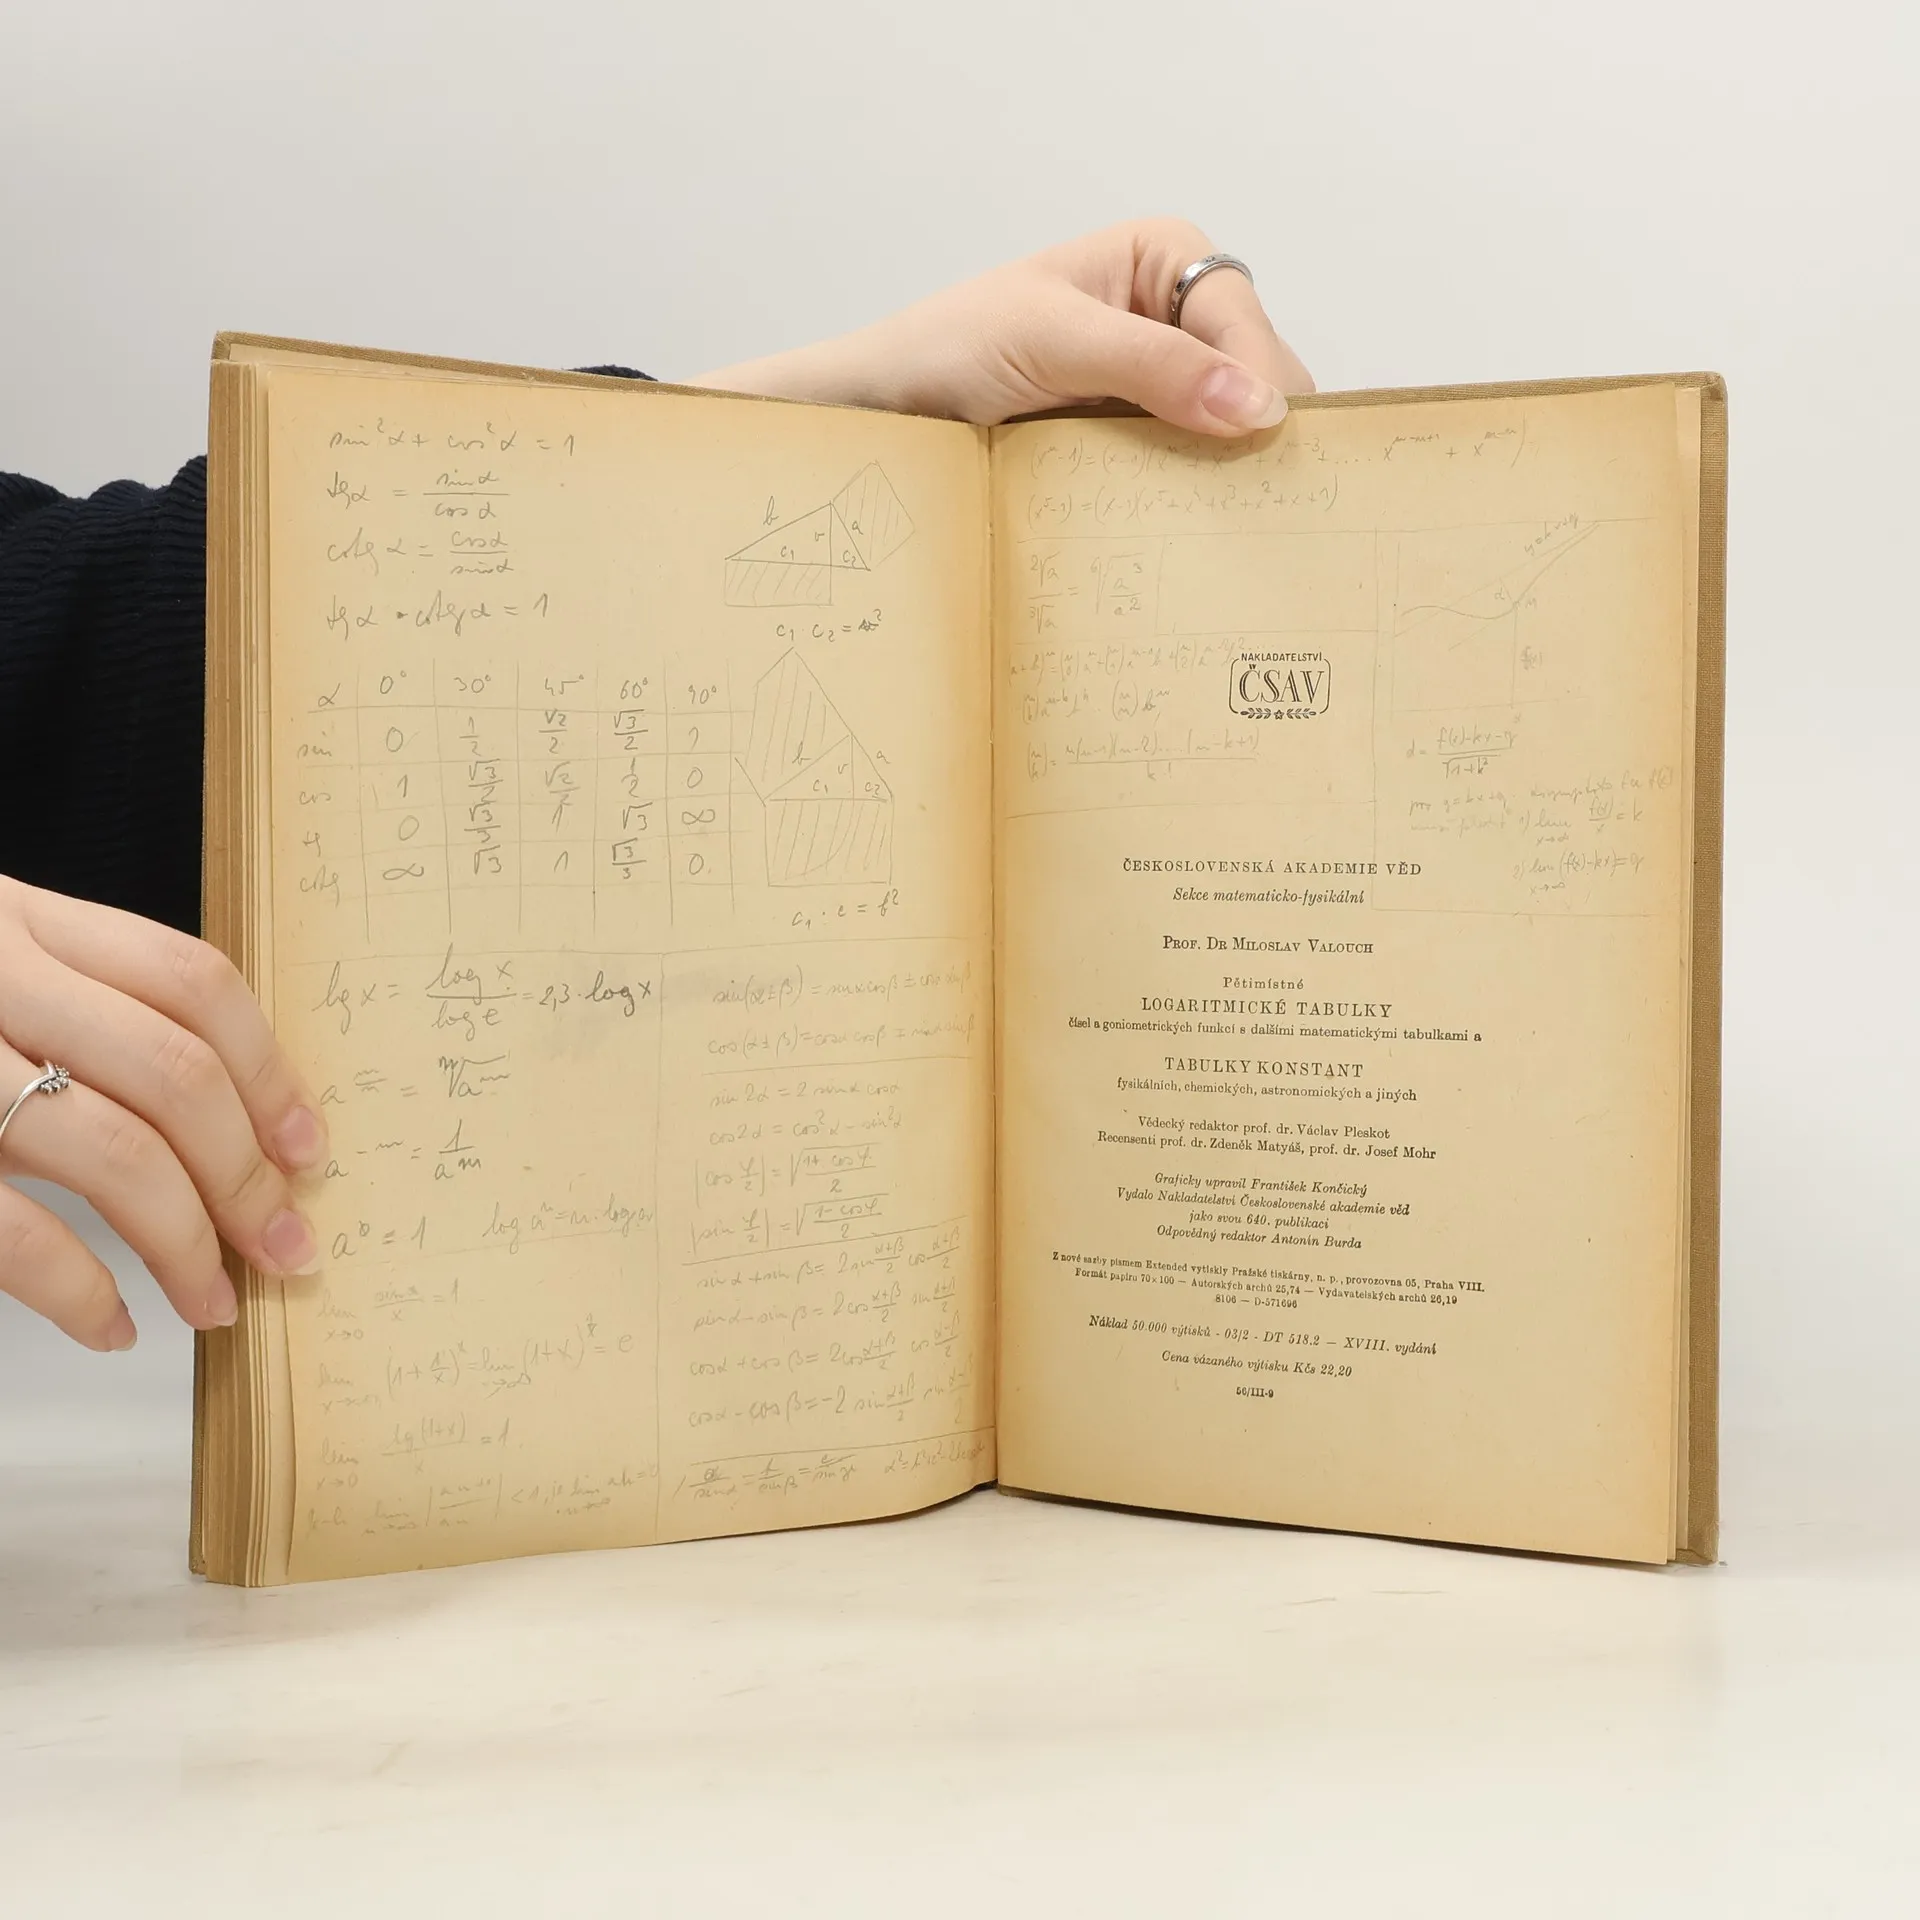 sin²α + cos²α = 1
tgα = sinα / cosα
cotg α = cosα / sinα
tgα · cotgα = 1
b a v c₁ c₂
c₁ c₂ = v²
α 0° 30° 45° 60° 90°
sin 0 1/2 √2/2 √3/2 1
cos 1 √3/2 √2/2 1/2 0
tg 0 √3/3 1 √3 ∞
cotg ∞ √3 1 √3/3 0
b a v c₁ c₂
c₁ · c = b²
lg x = log x / log e = 2,3 · log x
a^(m/n) = ⁿ√a^m
a^-m = 1/a^m
a⁰ = 1 log aⁿ = n · log a
lim x→0 sin x / x = 1
lim x→∞ (1 + 1/x)^x = lim (1+x)^(1/x) = e
lim x→0 lg(1+x) / x = 1
sin(α±β) = sinα cosβ ± cosα sinβ
cos(α±β) = cosα cosβ ∓ sinα sinβ
sin 2α = 2 sinα cosα
cos2α = cos²α − sin²α
|cos φ/2| = √(1+cos φ / 2)
|sin φ/2| = √(1−cos φ / 2)
sin α + sin β = 2 sin α+β/2 cos α+β/2
sin α − sin β = 2 cos α+β/2 sin
cosα + cos β = 2 cos α+β/2 cos α−β/2
cosα − cos β = −2 sin α+β/2 sin
a/sinα = b/sinβ = c/sinγ
(x⁵−1) = (x−1)(x⁵+x⁴+x³+x²+x+1)
²√a / ³√a = ⁶√(a³/a²)
(n k) = n(n−1)(n−2)....(n−k+1) / k!
d = f(x)−kx−q / √1+k²
f(x)/x = k
2) lim (f(x)−kx) = q
NAKLADATELSTVÍ
ČSAV
ČESKOSLOVENSKÁ AKADEMIE VĚD
Sekce matematicko-fysikální
PROF. DR MILOSLAV VALOUCH
Pětimístné
LOGARITMICKÉ TABULKY
čísel a goniometrických funkcí s dalšími matematickými tabulkami a
TABULKY KONSTANT
fysikálních, chemických, astronomických a jiných
Vědecký redaktor prof. dr. Václav Pleskot
Recensenti prof. dr. Zdeněk Matyáš, prof. dr. Josef Mohr
Graficky upravil František Končický
Vydalo Nakladatelství Československé akademie věd
jako svou 640. publikaci
Odpovědný redaktor Antonín Burda
Z nové sazby písmem Extended vytiskly Pražské tiskárny, n. p., provozovna 05, Praha VIII.
Formát papíru 70×100 — Autorských archů 25,74 — Vydavatelských archů 26,19
8106 — D-571696
Náklad 50.000 výtisků - 03/2 - DT 518.2 — XVIII. vydání
Cena vázaného výtisku Kčs 22,20
56/III-9